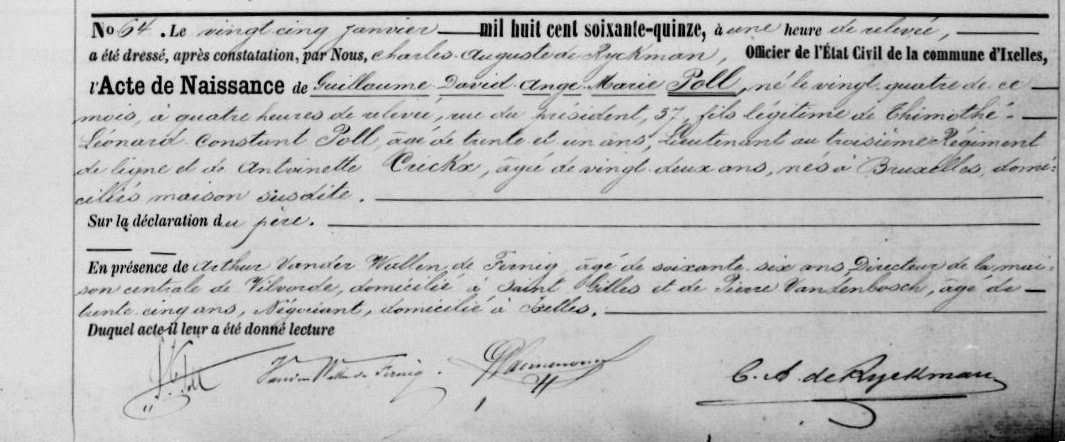 No 64. Le vingt cinq janvier mil huit cent soixante-quinze, à une heure de relevée,
a été dressé, après constatation, par Nous, Charles Auguste de Ryckman, Officier de l'État Civil de la commune d'Ixelles,
l'Acte de Naissance de Guillaume David Ange Marie Poll, né le vingt quatre de ce
mois, à quatre heures de relevée, rue du président, 37, fils légitime de Thimothé-
Léonard Constant Poll, âgé de trente et un ans, Lieutenant au troisième Régiment
de ligne et de Antoinette Crickx, âgée de vingt deux ans, nés à Bruxelles, domi-
ciliés maison susdite.
Sur la déclaration du père.
En présence de Arthur Vander Wallen de Fernig, âgé de soixante six ans, Directeur de la mai
son centrale de Vilvorde, domicilié à Saint Gilles et de Pierre Vandenbosch, âgé de
trente cinq ans, Négociant, domicilié à Ixelles.
Duquel acte il leur a été donné lecture
Poll Vander Wallen de Fernig. C. A. de Ryckman